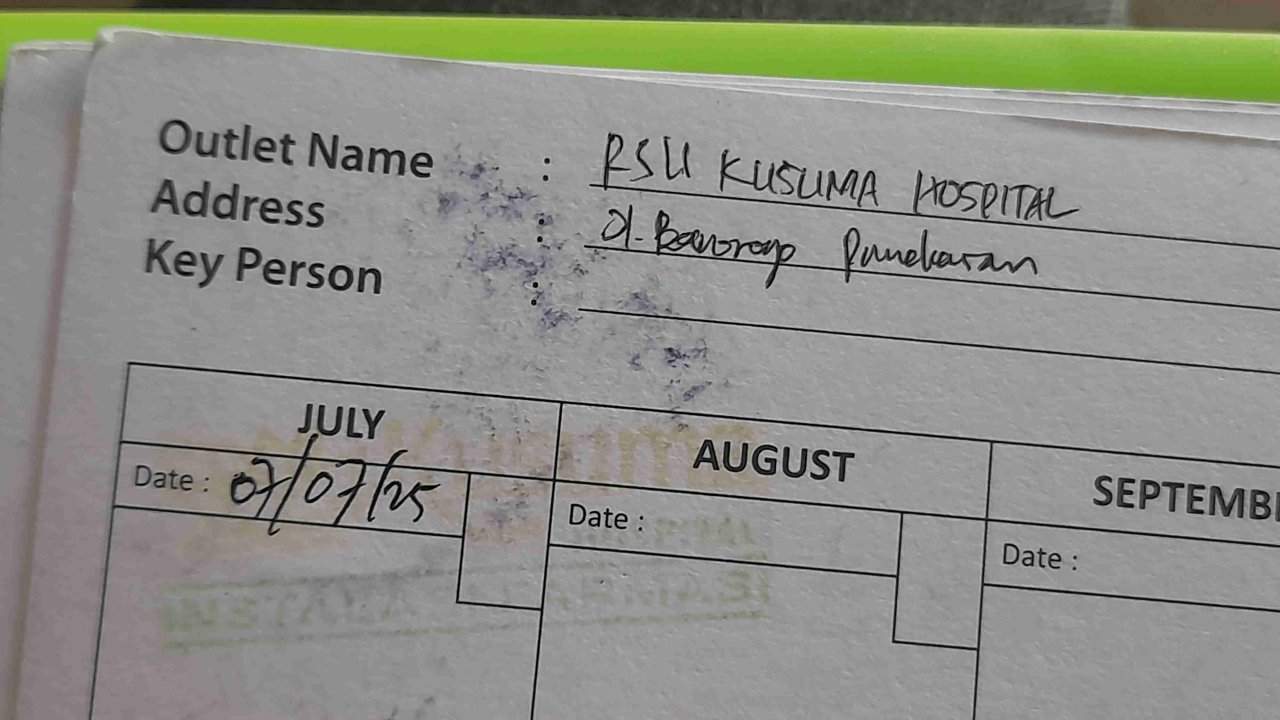 Outlet Name : RSU KUSUMA HOSPITAL
Address : Jl.
Key Person :
JULY
AUGUST
SEPTEMBE
Date : 07/07/25
Date :
Date :